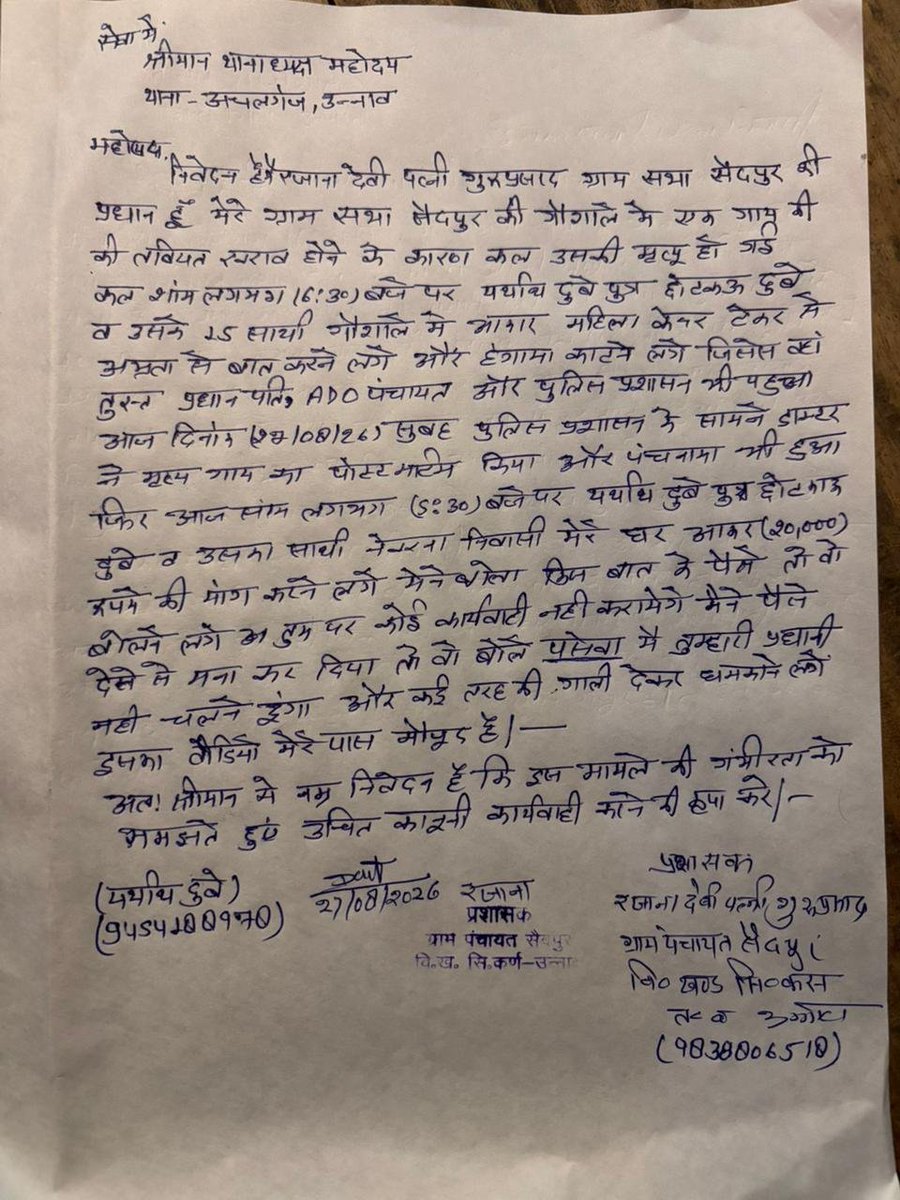 सेवा में,
श्रीमान थानाध्यक्ष महोदय
थाना - अचलगंज, उन्नाव
महोदय,
निवेदन है रजाना देवी पत्नी गुरूप्रसाद ग्राम सभा सैदपुर की
प्रधान हूँ मेरे ग्राम सभा सैदपुर की गौशाले के एक गाय की
की तबियत खराब होने के कारण कल उसकी मृत्यू हो गई
कल शांम लगभग (6:30) बजे पर यर्थाथ दुबे पुत्र छोटकऊ दुबे
व उसके 15 साथी गौशाले मे आकार महिला केयर टेकर से
अभ्रता से बात करने लगे और हंगामा काटने लगे जिसेस वहां
तुरन्त प्रधान पति, ADO पंचायत और पुलिस प्रशासन भी पहुचा
आज दिनांक (27/08/26) सुबह पुलिस प्रशासन के सामने डाक्टर
ने मृत्य गाय का पोस्टमार्टम किया और पंचनामा भी हुआ
फिर आज सांम लगभग (5:30) बजे पर यर्थाथ दुबे पुत्र छोटकऊ
दुबे व उसका साथी निवासी मेरे घर आकर (20,000)
रूपये की मांग करने लगे मेने बोला किस बात के पैसे तो वो
बोलने लगे अ तुम पर कोई कार्यवाही नही करायेगे मैने पैसे
देने से मना कर दिया तो वो बोले पसेवा मै तुम्हारी प्रधानी
नही चलने दूंगा और कई तरह की गाली देकर धमकाने लगे
इसका वीडियो मेरे पास मौजूद है।—
अतः श्रीमान से नम्र निवेदन है कि इस मामले की गंभीरता को
समझते हुए उचित कानूनी कार्यवाही करने की कृपा करे।-
प्रशासक
(यर्थाथ दुबे)
(9454100970)
27/08/2026
रजाना
प्रशासक
ग्राम पंचायत सैदपुर
वि.ख. सि.कर्ण-उन्ना
रजाना देवी पत्नी गुरूप्रसाद
ग्राम पंचायत सैदपुर
वि० खण्ड सि०कर्ण
(9838006510)